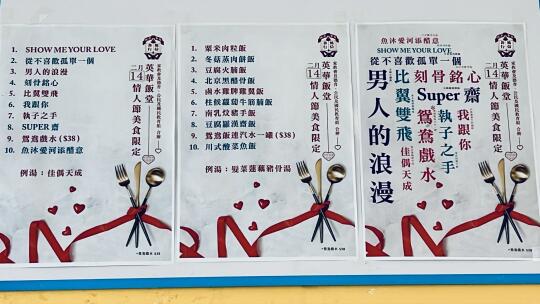 1. SHOW ME YOUR LOVE
2. 從不喜歡孤單一個
3. 男人的浪漫
4. 刻骨銘心
5. 比翼雙飛
6. 我跟你
7. 執子之手
8. SUPER 齋
9. 鴛鴦戲水 ($38)
10. 魚沐愛河添醋意
例湯：佳偶天成
英華飯堂
二月14情人節美食限定
1. 粟米肉粒飯
2. 冬菇蒸肉餅飯
3. 豆腐火腩飯
4. 北京黑醋骨飯
5. 鹵水雞脾雞翼飯
6. 柱候蘿蔔牛筋腩飯
7. 南乳炆豬手飯
8. 豆腐羅漢齋飯
9. 鴛鴦飯連汽水一罐 ($38)
10. 川式酸菜魚飯
例湯：粟米蓮藕豬骨湯
英華飯堂
二月14情人節美食限定
魚沐愛河添醋意
SHOW ME YOUR LOVE
從不喜歡孤單一個
刻骨銘心
男人的浪漫
比翼雙飛
佳偶天成
Super 齋
鴛鴦戲水
執子之手
我跟你
英華飯堂
二月14情人節美食限定